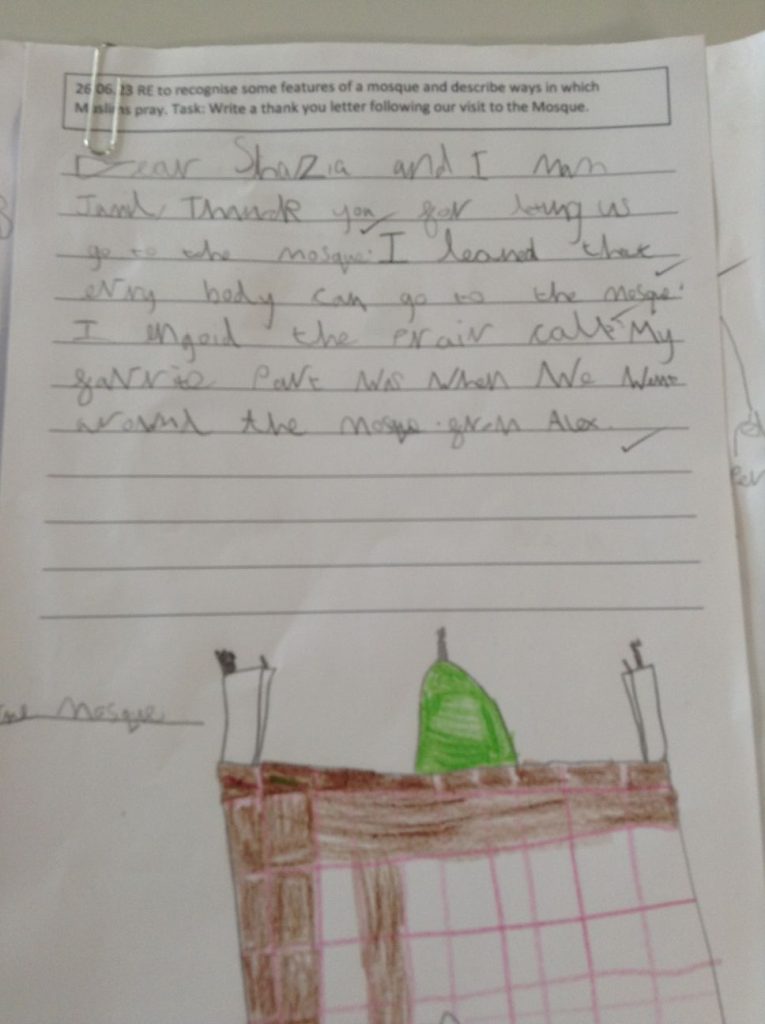 26.06.23 RE to recognise some features of a mosque and describe ways in which
Muslims pray. Task: Write a thank you letter following our visit to the Mosque.
Dear Shazia and I man
Jamil, Thank you for leting us
go to the mosque. I leaned that
evry body can go to the mosque.
I engoid the prair call. My
favrite Part was when We Went
around the mosque. from Alex.
Mosque